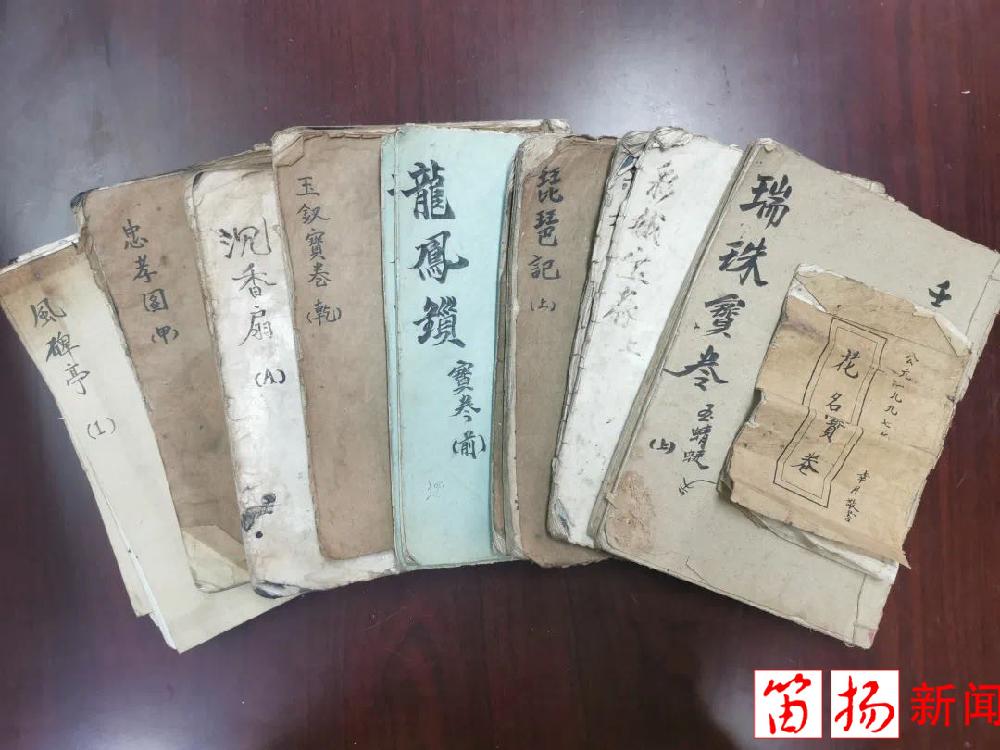 風碑亭
(1)
忠孝图
(甲)
沉香扇
(A)
玉釵寶卷
(乾)
龍鳳鎖
寶卷
(前)
琵琶記
(上)
寶卷
上
瑞珠寶卷
玉蜻蜓
(上)
壬
花名寶卷
公元一九九七
敬書
笛扬新闻